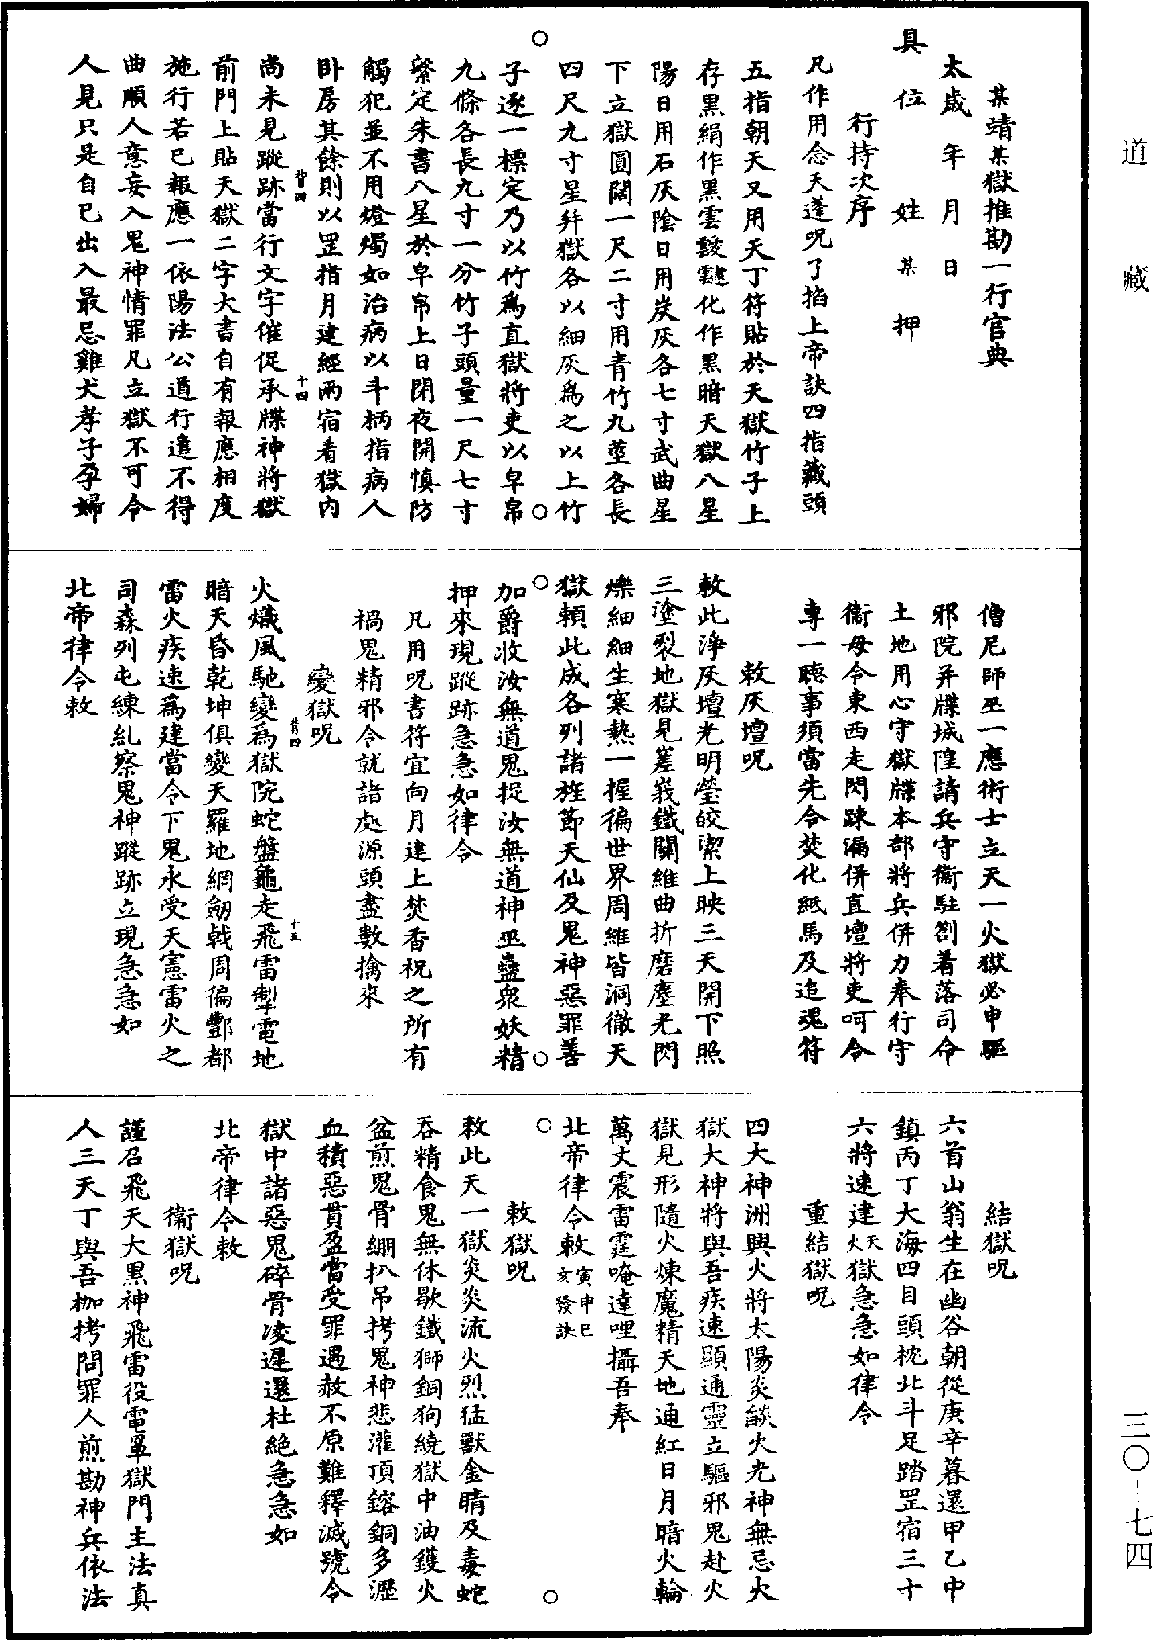 道藏
三〇—七四
某靖某獄推勘一行官典
太歲年月日
具位姓某押
行持次序
凡作用念天蓬呪了掐上帝訣四指藏頭
五指朝天又用天丁符貼於天獄竹子上
存黑絹作黑雲靉靆化作黑暗天獄八星
陽日用石灰陰日用炭灰各七寸武曲星
下立獄圓闊一尺二寸用青竹九莖各長
四尺九寸星幷獄各以細灰爲之以上竹
子逐一標定乃以竹爲直獄將吏以皁帛
九條各長九寸一分竹子頭量一尺七寸
繫定朱書八星於皁帛上日閉夜開慎防
觸犯並不用燈燭如治病以斗柄指病人
卧房其餘則以罡指月建經兩宿看獄内
尚未見蹤跡當行文字催促承牒神將獄
前門上貼天獄二字大書自有報應相度
施行若已報應一依陽法公道行遣不得
曲順人意妄入鬼神情罪凡立獄不可令
人見只是自已出入最忌雞犬孝子孕婦
僧尼師巫一應術士立天一火獄必申驅
邪院并牒城隍請兵守衞駐劄着落司命
土地用心守獄牒本部將兵併力奉行守
衞毋令東西走閃踈漏併直壇將吏呵令
專一聽事須當先令焚化紙馬及追魂符
敕灰壇呪
敕此淨灰壇光明瑩皎潔上映三天開下照
三塗裂地獄見嵳峩鐵關維曲折磨塵光閃
爍細細生寒熱一握徧世界周維皆洞徹天
獄賴此成各列諸旌節天仙及鬼神惡罪善
加爵收汝無道鬼捉汝無道神巫蠱衆妖精
押來現蹤跡急急如律令
凡用呪書符宜向月建上焚香祝之所有
禍鬼精邪令就詣處源頭盡數擒來
變獄呪
火熾風馳變爲獄院蛇盤龜走飛雷掣電地
暗天昏乾坤俱變天羅地網劒戟周徧酆都
雷火疾速爲建當令下鬼永受天憲雷火之
司森列屯練糺察鬼神蹤跡立現急急如
北帝律令敕
結獄呪
六首山翁生在幽谷朝從庚辛暮還甲乙中
鎮丙丁大海四目頭枕北斗足踏罡宿三十
六將速建天火獄急急如律令
重結獄呪
四大神洲興火將太陽炎燄火光神無忌火
獄大神將與吾疾速顯通靈立驅邪鬼赴火
獄見形隨火煉魔精天地通紅日月暗火輪
萬丈震雷霆唵達哩攝吾奉
北帝律令敕寅申巳亥發訣
敕獄呪
敕此天一獄炎炎流火烈猛獸金睛及毒蛇
吞精食鬼無休歇鐵獅銅狗繞獄中油鑊火
盆煎鬼骨綳扒吊拷鬼神悲灌頂鎔銅多瀝
血積惡貫盈當受罪遇赦不原難釋減號令
獄中諸惡鬼碎骨凌遲還杜絶急急如
北帝律令敕
衞獄呪
謹召飛天大黑神飛雷役電罩獄門主法真
人三天丁與吾枷拷問罪人煎勘神兵依法